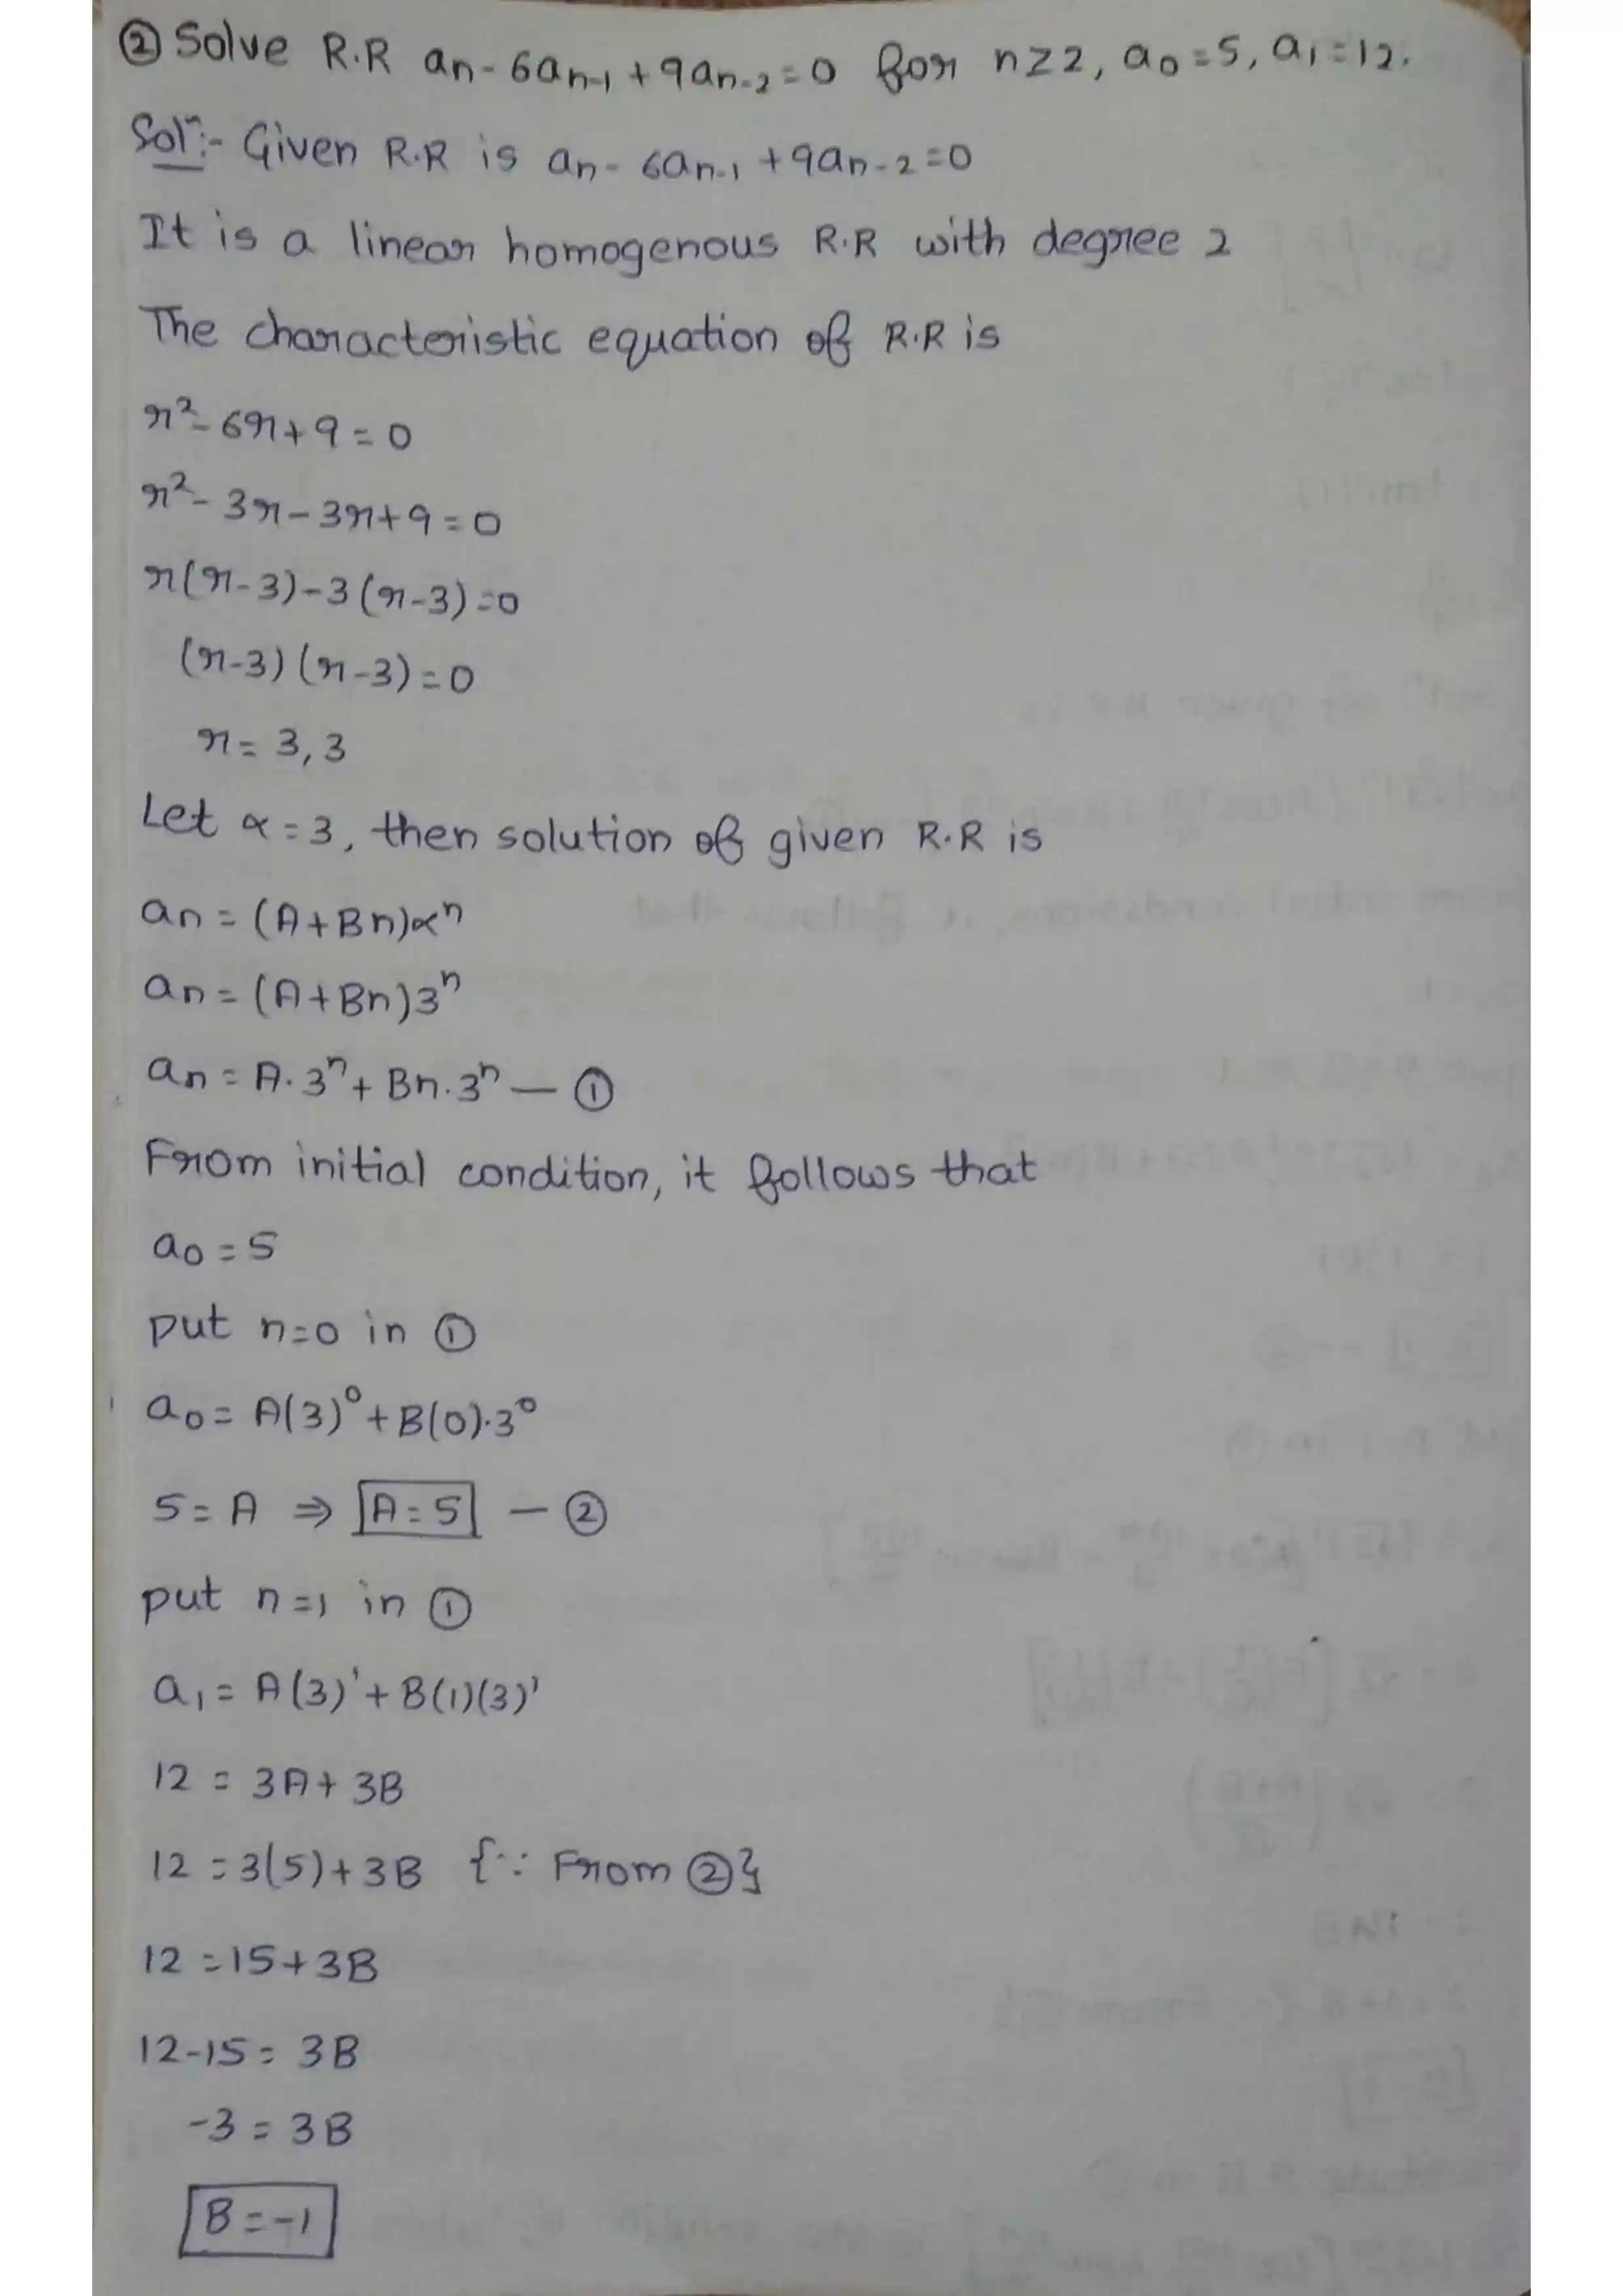 ② Solve R.R aₙ - 6aₙ₋₁ + 9aₙ₋₂ = 0 for n ≥ 2, a₀ = 5, a₁ = 12.
Solⁿ:- Given R.R is aₙ - 6aₙ₋₁ + 9aₙ₋₂ = 0
It is a linear homogenous R.R with degree 2
The characteristic equation of R.R is
r² - 6r + 9 = 0
r² - 3r - 3r + 9 = 0
r(r-3) - 3(r-3) = 0
(r-3)(r-3) = 0
r = 3, 3
Let α = 3, then solution of given R.R is
aₙ = (A + Bn)αⁿ
aₙ = (A + Bn)3ⁿ
aₙ = A·3ⁿ + Bn·3ⁿ — ①
From initial condition, it follows that
a₀ = 5
put n=0 in ①
a₀ = A(3)⁰ + B(0)·3⁰
5 = A ⇒ A = 5 — ②
put n=1 in ①
a₁ = A(3)¹ + B(1)(3)¹
12 = 3A + 3B
12 = 3(5) + 3B {∵ From ②}
12 = 15 + 3B
12 - 15 = 3B
-3 = 3B
B = -1